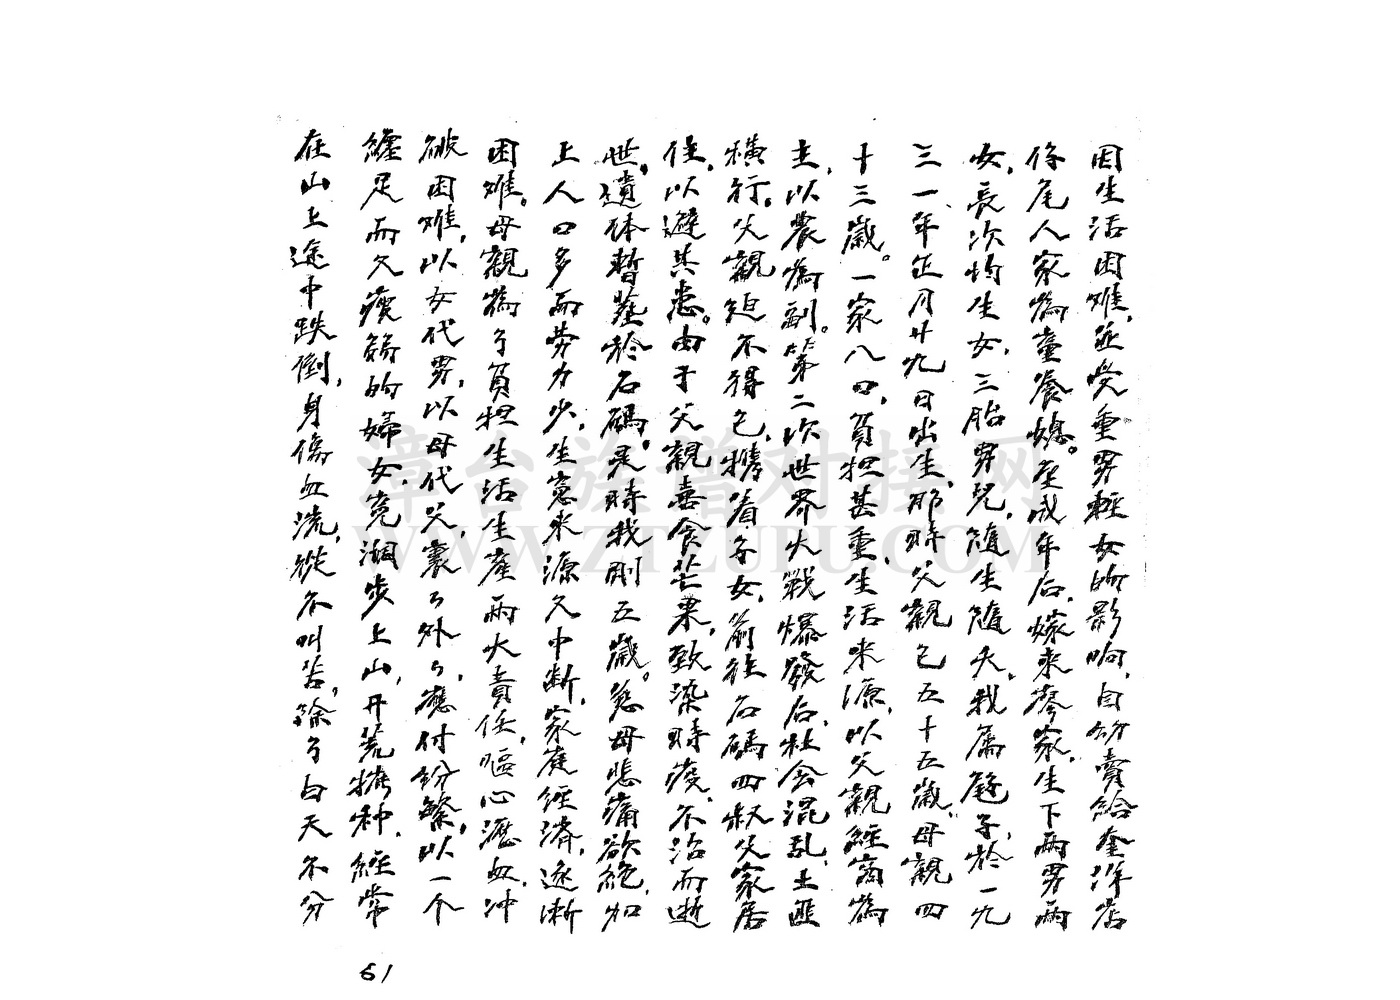 因生活困难，並受重男輕女的影响，自幼賣給奎洋店
仔尾人家為童養媳。至成年后，嫁来廖家，生下两男兩
女，長次均生女，三胎男兒，随生随夭，我属尾子，於一九
三一年正月廿九日出生，那時父親已五十五歲，母親四
十三歲。一家八口，負担甚重，生活来源，以父親經商為
主，以農為副。第二次世界大戰爆發后，社会混乱，土匪
横行。父親迫不得已，携着子女，前往石碼四叔父家居
住，以避其患。由于父親喜食芒果，致染時疫，不治而逝
世，遺体暫塟於石碼。是時我剛五歲。慈母悲痛欲絕，加
上人口多而劳力少，生意来源又中断，家庭經濟，逐漸
困难。母親為了負担生活生産兩大責任，嘔心瀝血，冲
破困难，以女代男，以母代父，裏裏外外，應付紛繁，以一个
纏足而又瘦弱的婦女，竟涸步上山，开荒揷种，經常
在山上途中跌倒，身傷血流，從不叫苦，除了白天不分
61
章台族譜对接网
WWW.ZTZUPU.COM